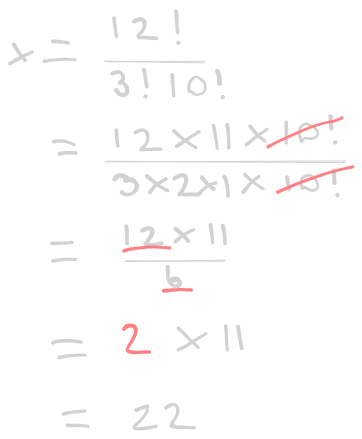 x = 12! / 3! 10!
= 12 × 11 × 10! / 3 × 2 × 1 × 10!
= 12 × 11 / 6
= 2 × 11
= 22